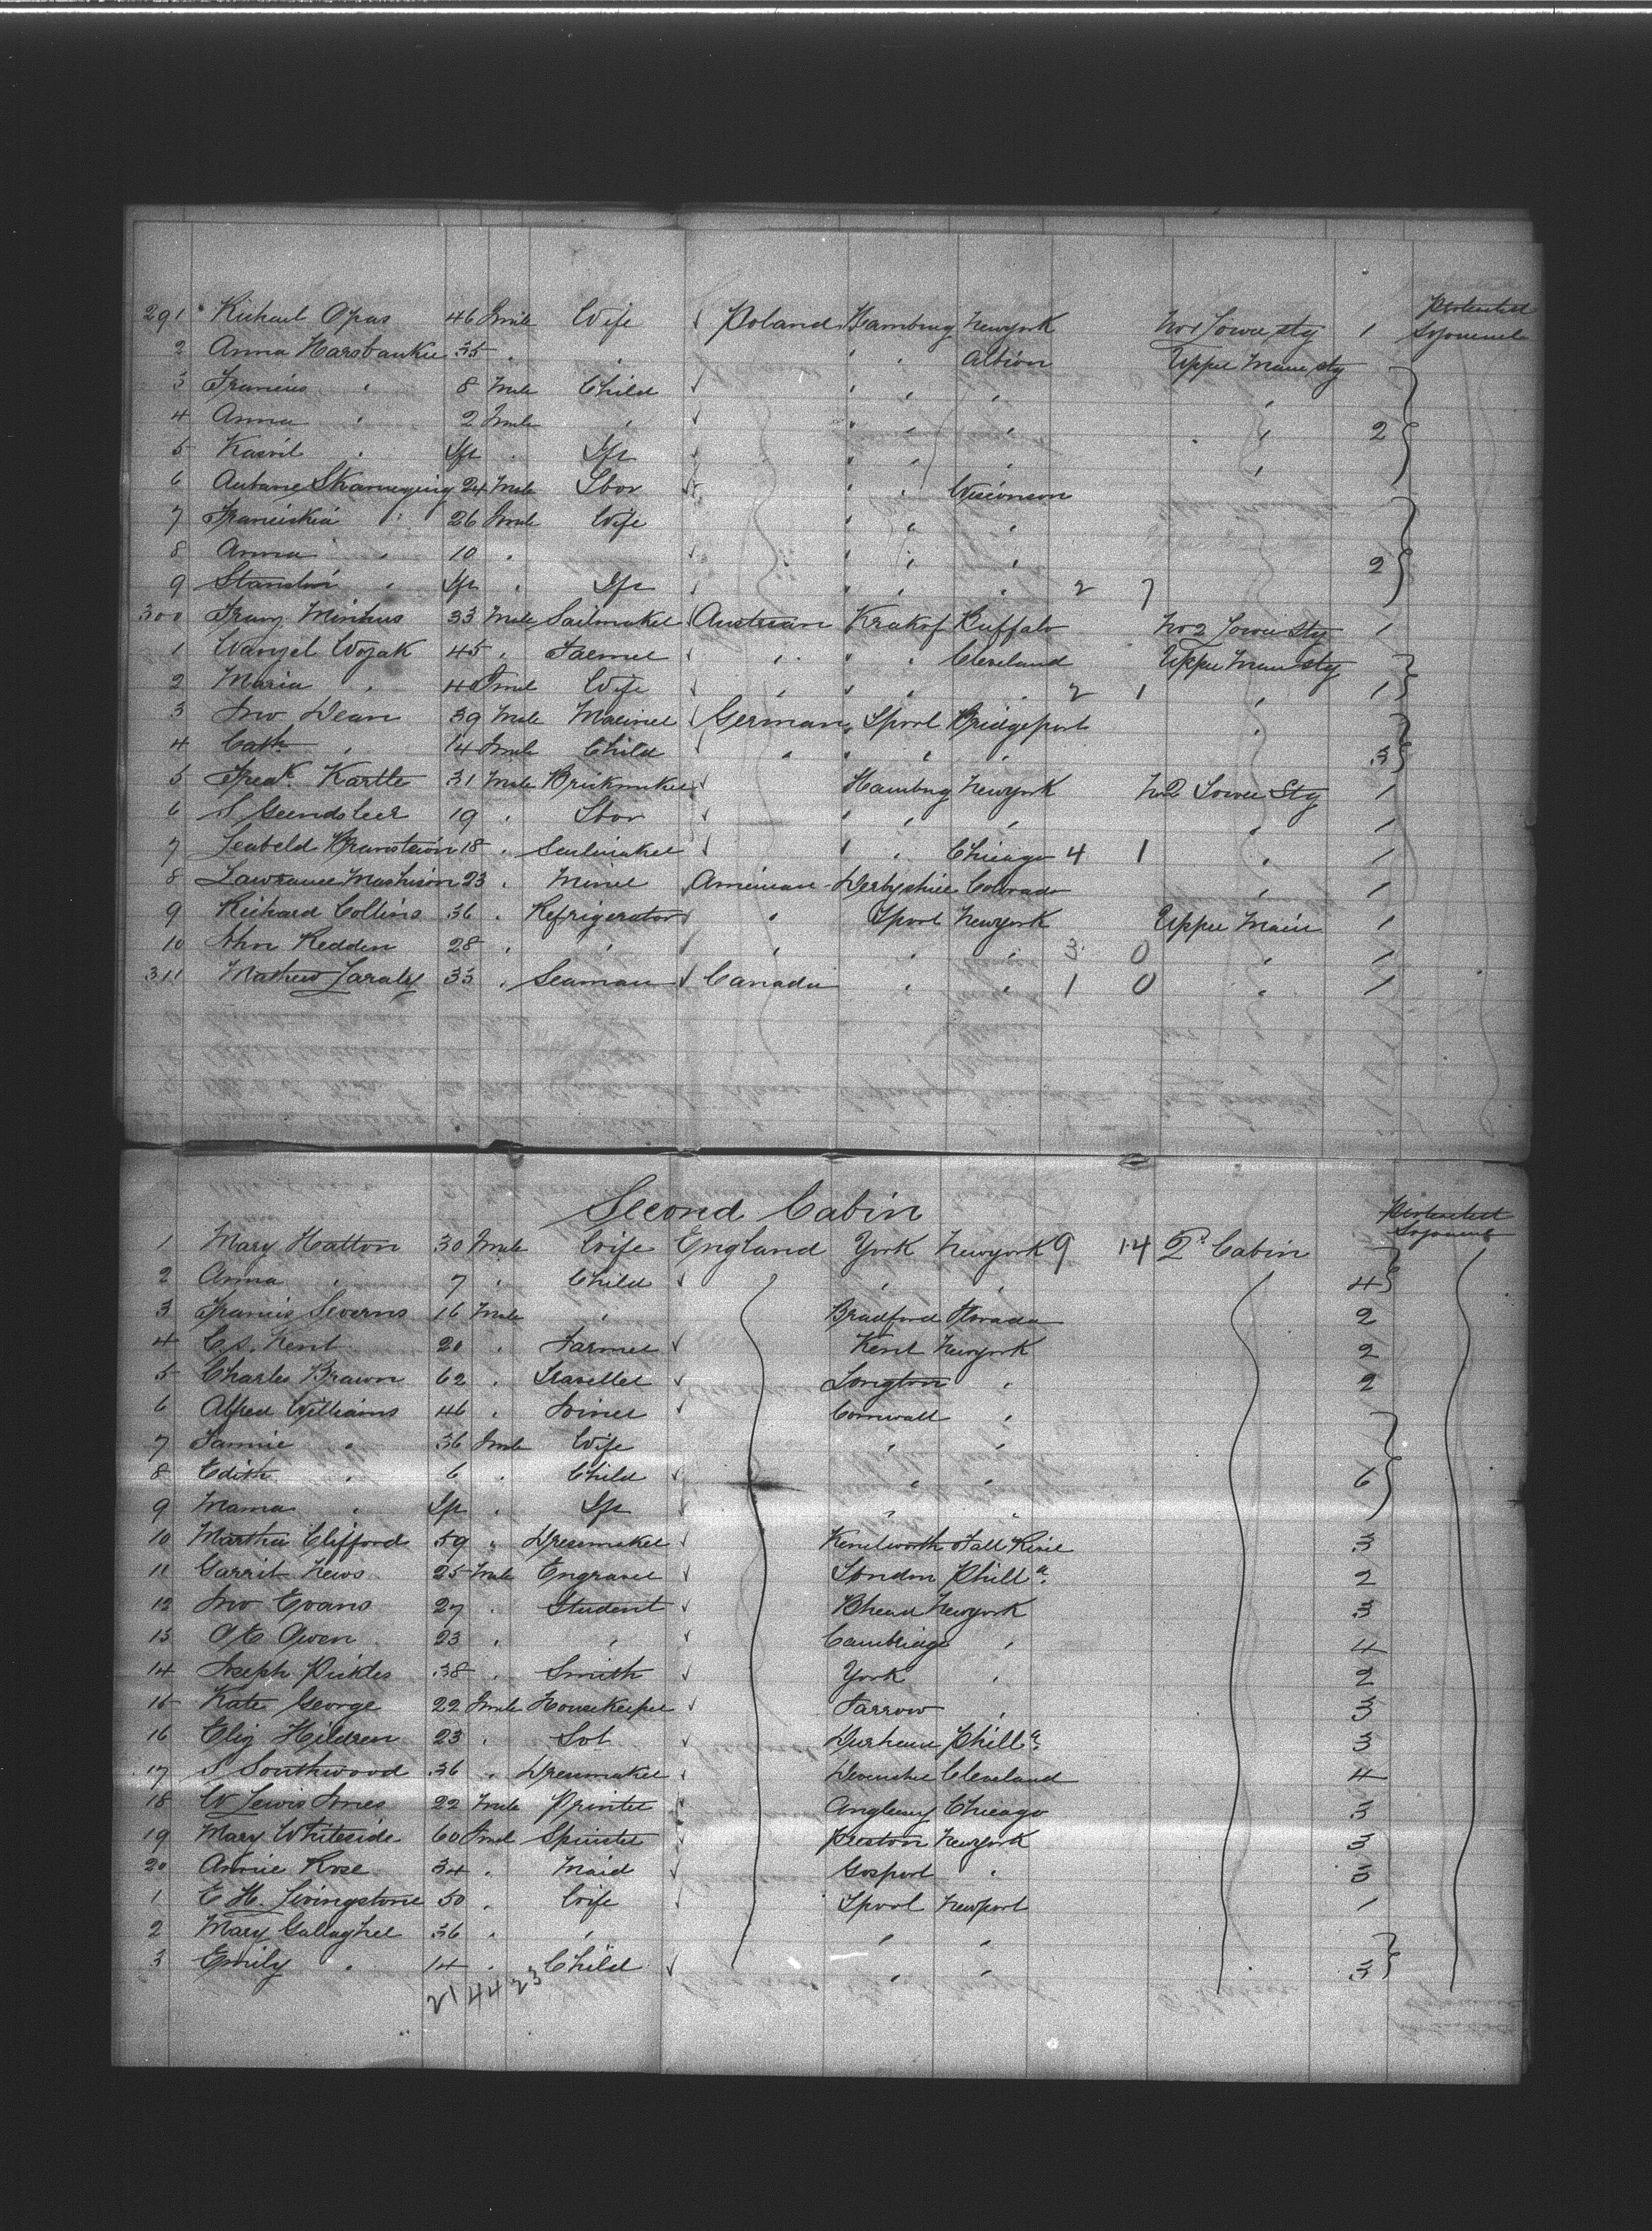 291 Opas 46 Fmle Wife Poland Hamburg Newyork No 1 Lower Stg 1
2 Anna 35 " " " " Albion Upper Main Stg
3 Francius " 8 Male Child " " "
4 Anna " 2 Fmle " " " " " 2
5 " Inf " Inf " " " "
6 24 Male Lbor " " Wisconson
7 " 26 Fmle Wife " " "
8 Anna " 10 " " " " 2
9 " Inf " Inf " " " 2 7
300 Franz Minkus 33 Male Sailmaker Austrian Krakof Buffalo No 2 Lower Stg 1
1 Wozak 45 " Farmer " " " Cleveland Upper Main Stg
2 Maria " 40 Fmel Wife " " " " 2 1 " 1
3 Jno Dean 39 Male Mariner German " Lpool Bridgeport "
4 Cath " 14 Fmle Child " " " " 3
5 Fredk Kartte 31 Male Brickmaker Hamburg Newyork No 2 Lower Stg 1
6 S 19 " Lbor " " " " 1
7 18 " Sailmaker " " Chicago 4 1 " 1
8 Lawrance 23 " Miner American Derbyshire Colorado " 1
9 Richard Collins 36 " Refrigerator " Lpool Newyork Upper Main 1
10 Redden 28 " " " " " 3 0 " 1
311 Mathew 33 " Seaman Canada " " 1 0 " 1
Second Cabin
1 Mary Hatton 30 Fmle Wife England York Newyork 9 14 2d Cabin
2 Anna " 7 " Child " " 4
3 Francis Severns 16 Male " Bradford 2
4 C S. Kent 20 " Farmer Kent Newyork 2
5 Charles Brawn 62 " Traveller Longton " 2
6 Alfred Williams 46 " Joiner Cornwall "
7 Fannie " 36 Fmle Wife " "
8 Edith " 6 " Child " " 6
9 Mama " Inf " Inf " "
10 Martha Clifford 59 " Dressmaker Kenilworth Fall River 3
11 Garrit News 25 Male Engraver London Phill a. 2
12 Jno Evans 27 " Student Bhead Newyork 3
13 O E Owen 23 " " Cambridge " 4
14 Joseph Pickles 38 " Smith York " 2
15 Kate George 22 Fmle Housekeeper Jarrow " 3
16 Eliz Hildren 23 " Durham Phill a. 3
17 S Southwood 36 " Dressmaker Devonshire Cleveland 4
18 W Lewis Jones 22 Male Printer Anglesey Chicago 3
19 Mary Whiteside 60 Fmel Spinster Preston Newyork 3
20 Annie Rose 34 " Maid Gosport " 3
1 E H. Livingstone 50 " Wife Lpool Newport 1
2 Mary Gallagher 36 " " " "
3 Emily " 14 " Child " " 3
21 44 23